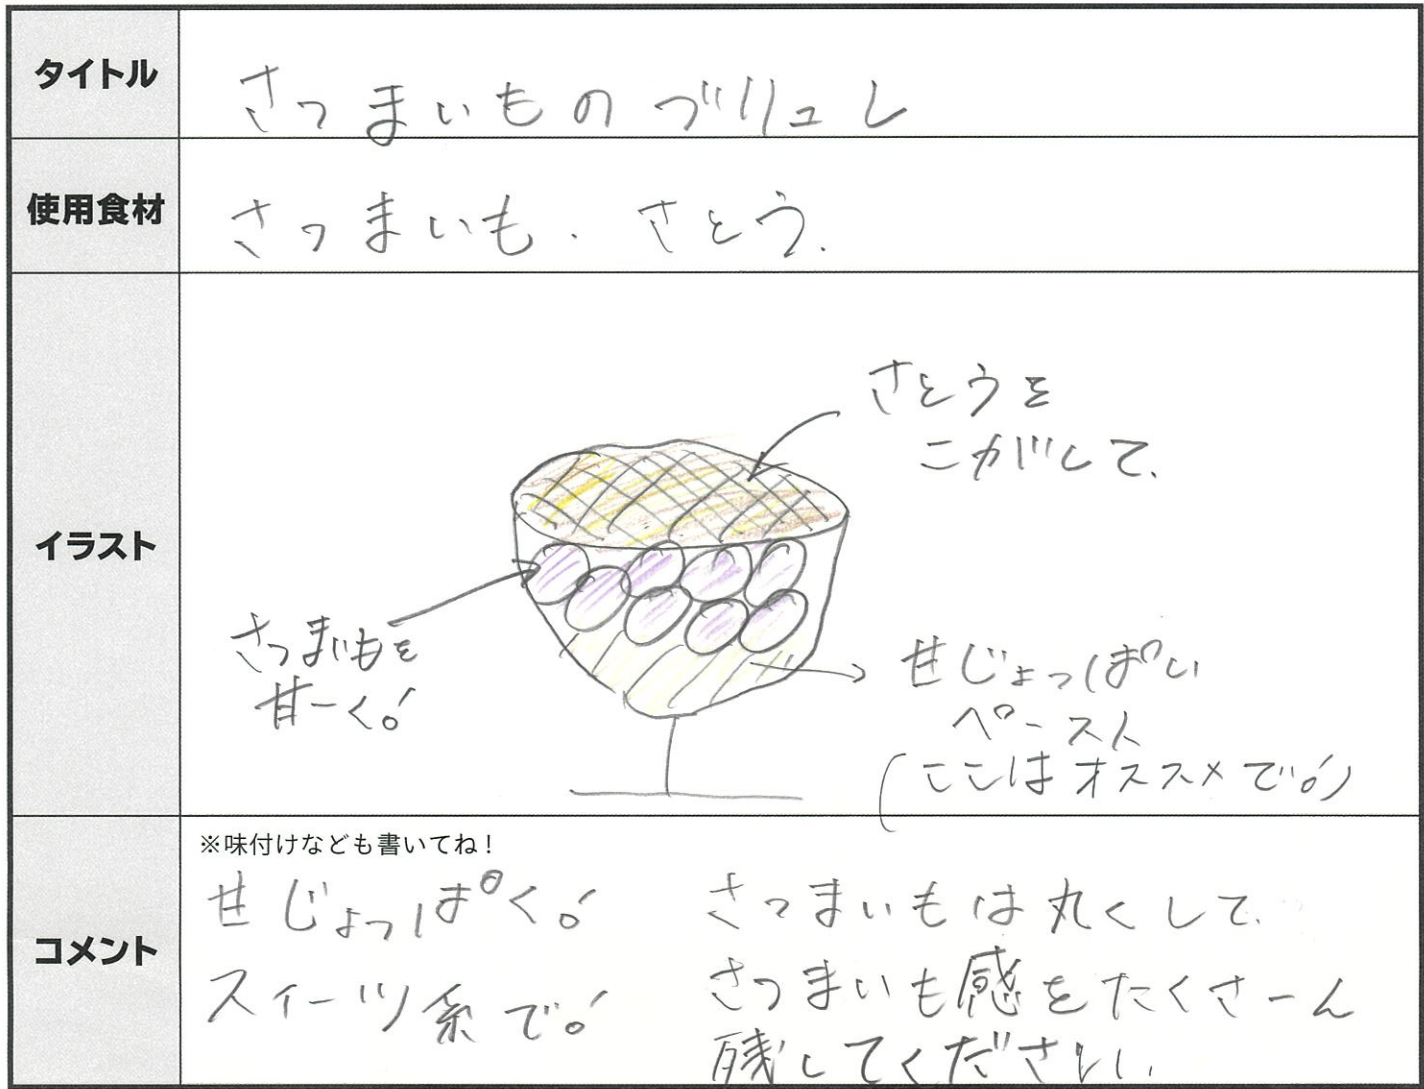 タイトル
さつまいものブリュレ
使用食材
さつまいも．さとう．
イラスト
さとうを
こがして、
さつまいもを
甘ーく！
甘じょっぱい
ペースト
（ここはオススメで！）
コメント
※味付けなども書いてね！
甘じょっぱく！
スイーツ系で！
さつまいもは丸くして、
さつまいも感をたくさーん
残してください。